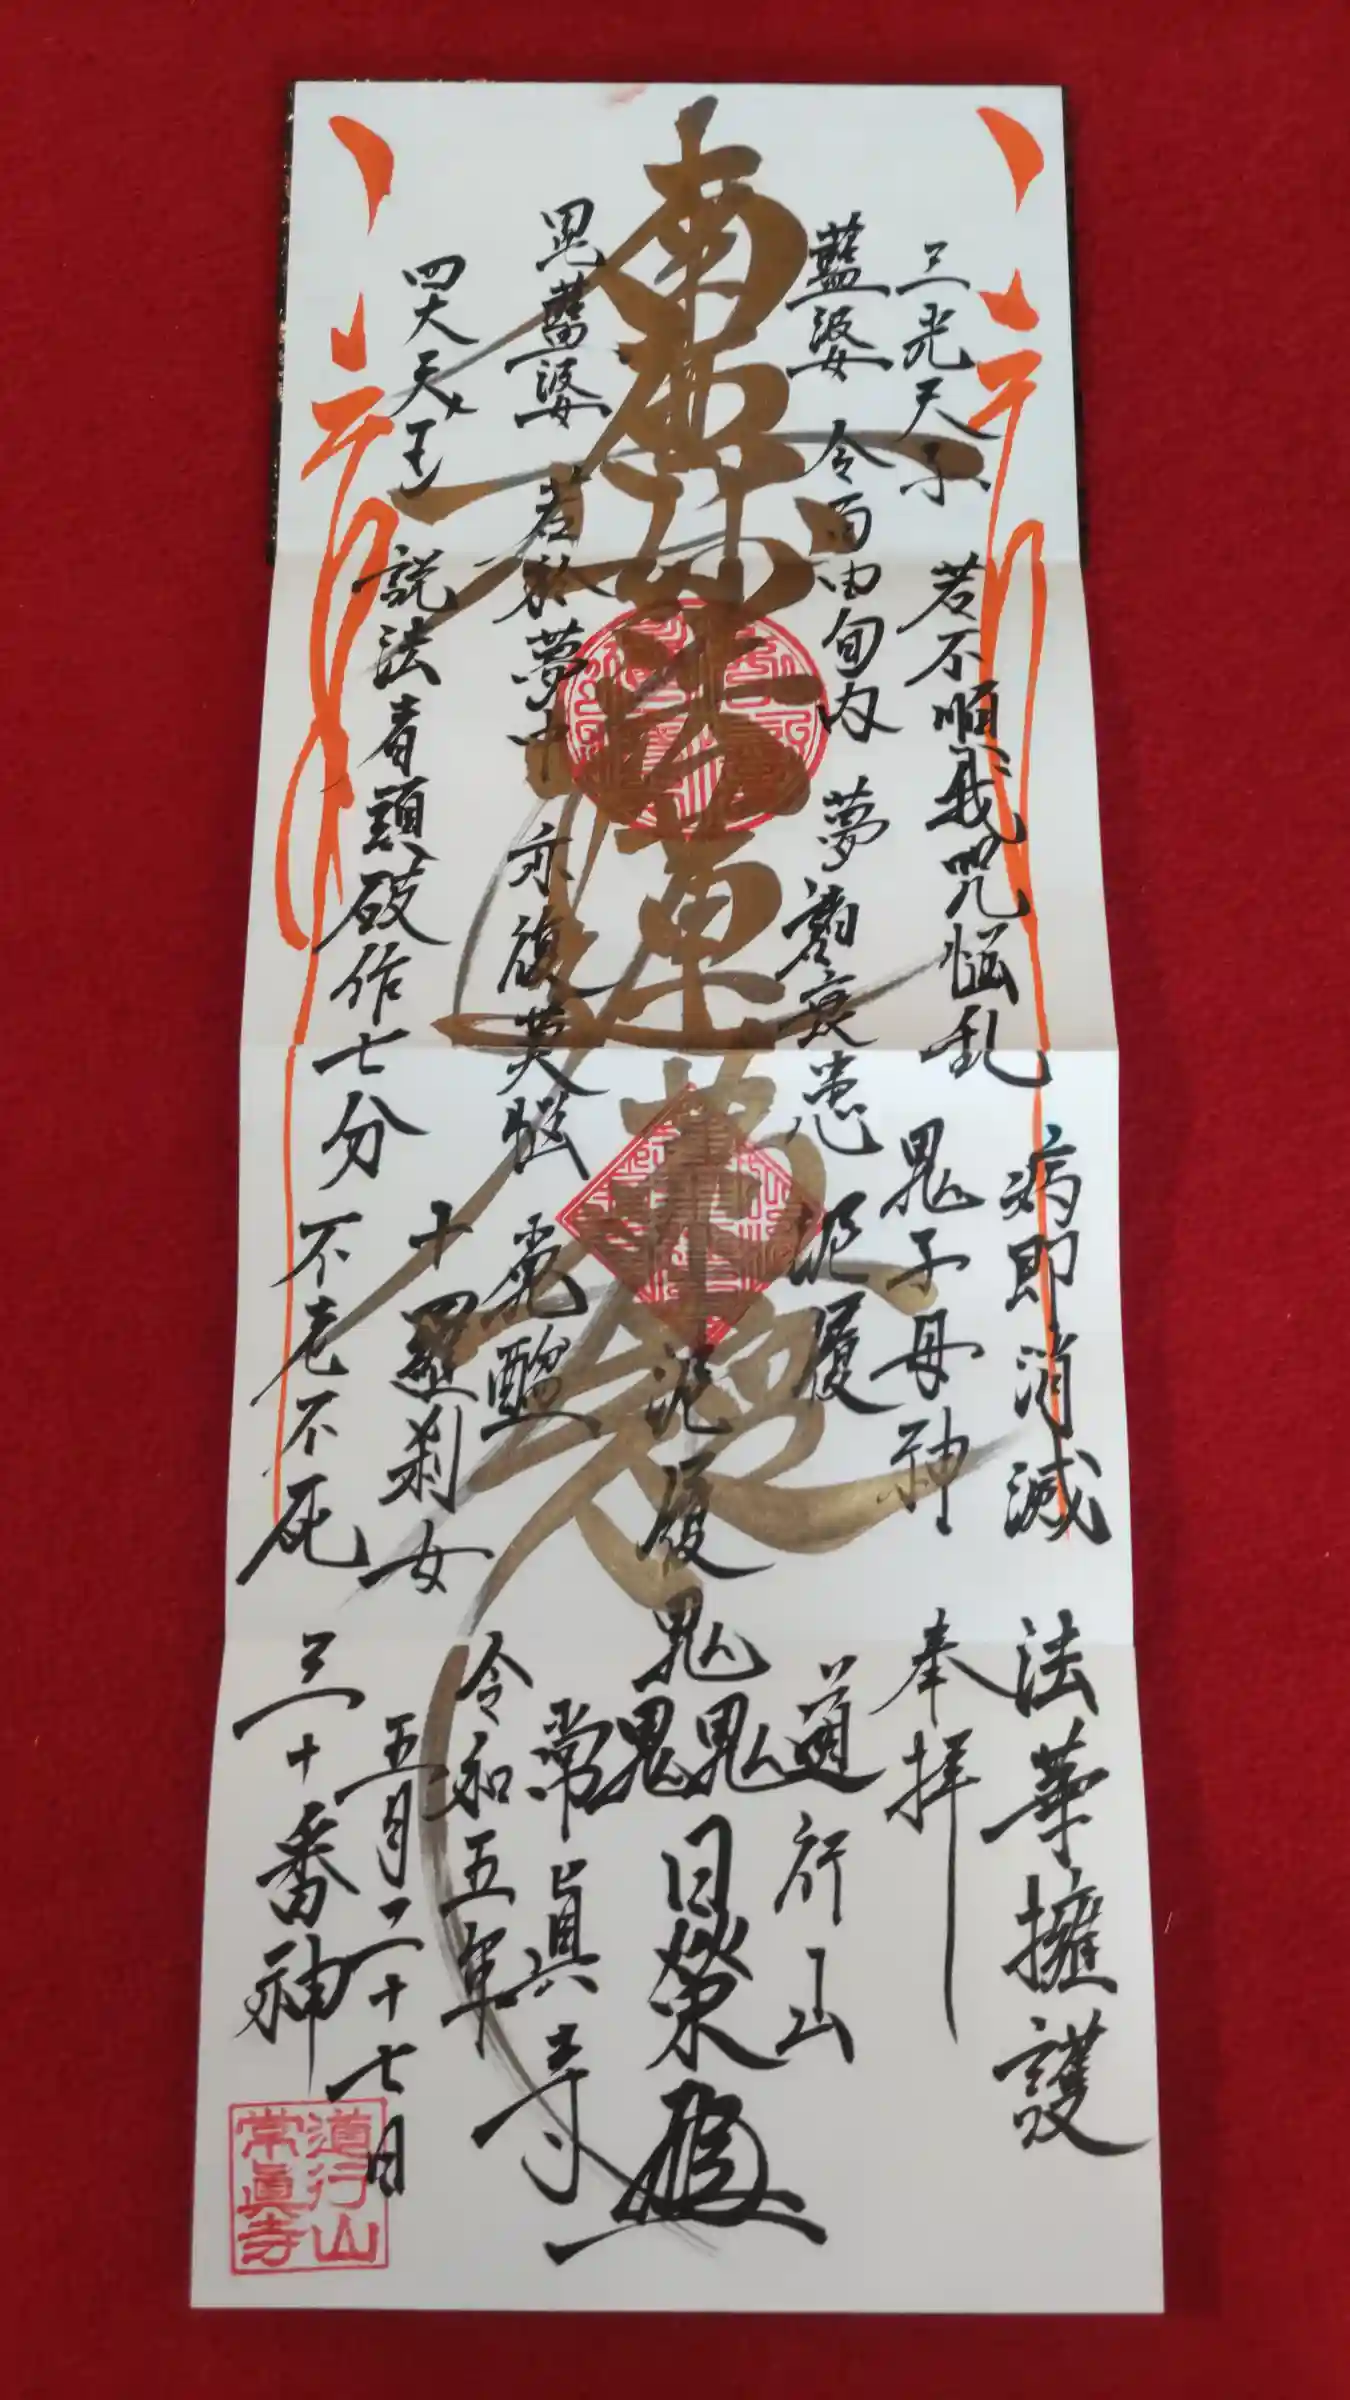 南無妙法蓮華経
病即消滅
法華擁護
三光天子
若不順我咒悩乱
鬼子母神
奉拝
藍婆
令百由旬内
夢
衰患
泥履
道行山
泥履
鬼
鬼鬼
日榮
毘藍婆
若於夢中
亦復莫悩
常眞寺
令和五年
四大天王
説法者頭破作七分
十羅刹女
五月二十七日
不老不死
三十番神
道行山
常眞寺